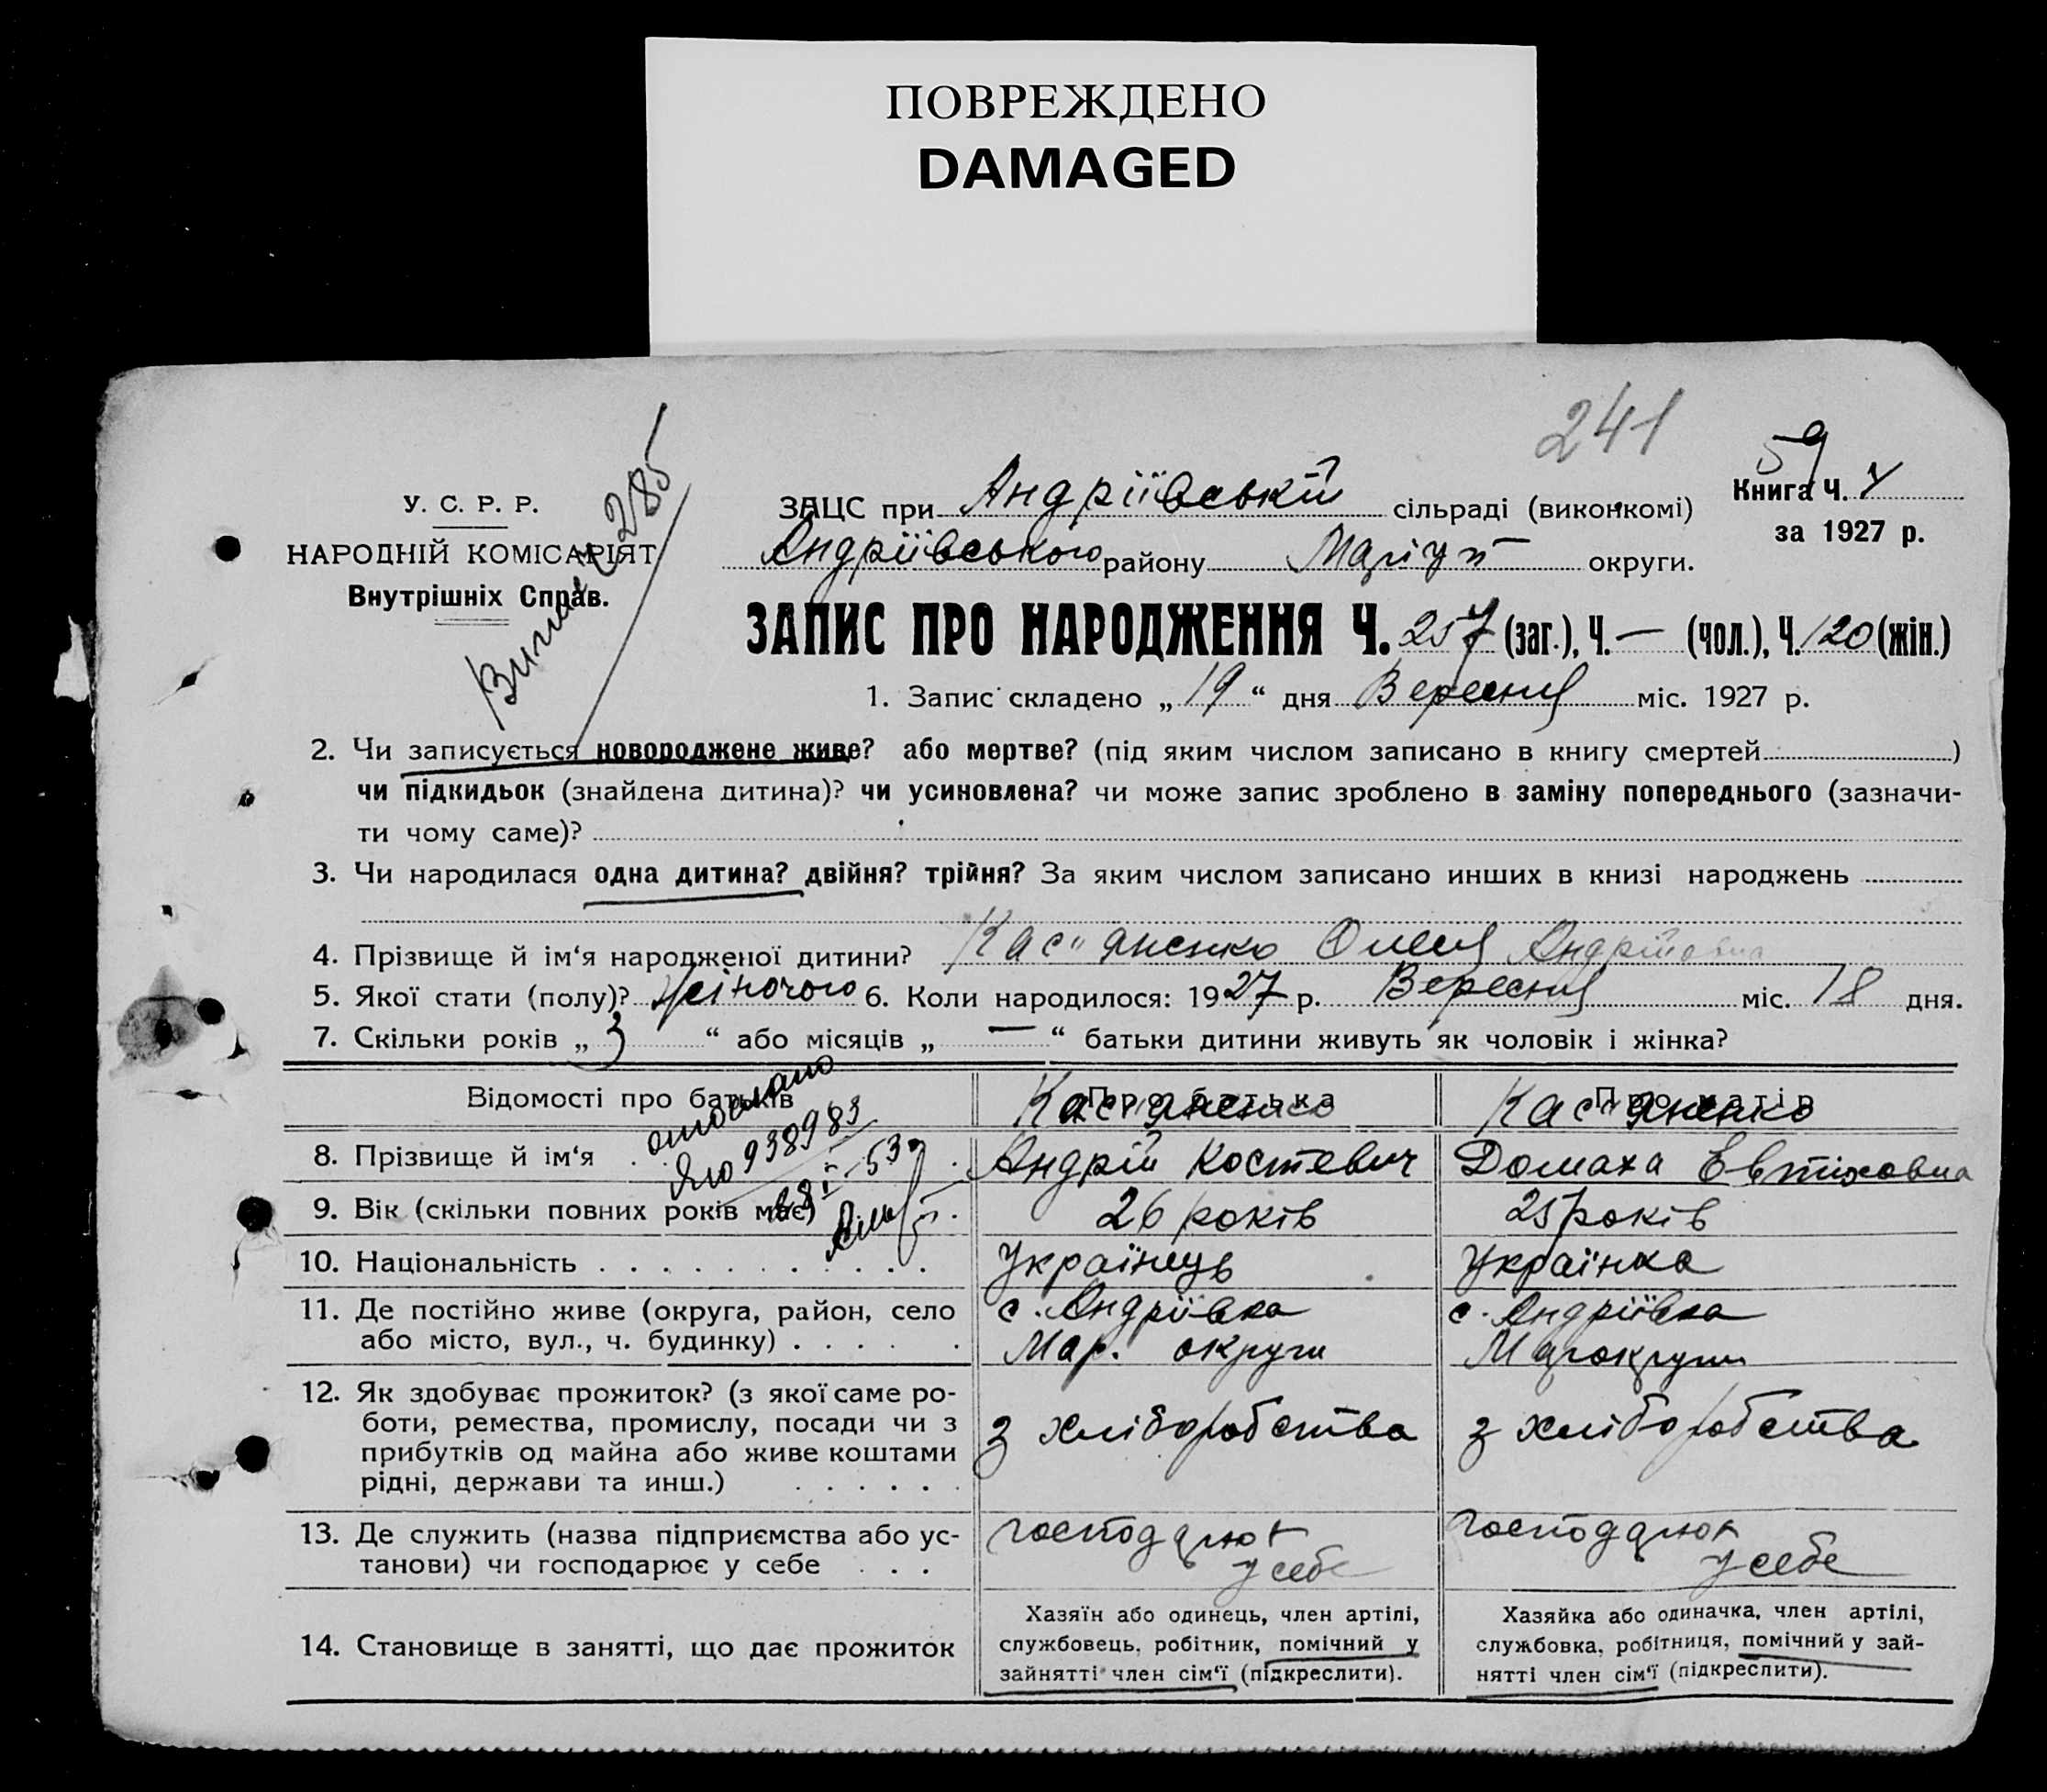 ПОВРЕЖДЕНО
DAMAGED
241
59
У. С. Р. Р.
НАРОДНІЙ КОМІСАРІЯТ
Внутрішніх Справ.
285
ЗАЦС при Андріївській сільраді (виконкомі)
Книга Ч.
за 1927 р.
Андріївського району Маріуп округи.
ЗАПИС ПРО НАРОДЖЕННЯ Ч. 257 (заг.), Ч. — (чол.), Ч. 120 (жін.)
1. Запис складено „ 19 “ дня Вересня міс. 1927 р.
2. Чи записується новороджене живе? або мертве? (під яким числом записано в книгу смертей )
чи підкидьок (знайдена дитина)? чи усиновлена? чи може запис зроблено в заміну попереднього (зазначи-
ти чому саме)?
3. Чи народилася одна дитина? двійня? трійня? За яким числом записано инших в книзі народжень
4. Прізвище й ім‘я народженої дитини? Кас"яненко Олена Андріївна
5. Якої стати (полу)? Жіночого 6. Коли народилося: 1927 р. Вересня міс. 18 дня.
7. Скільки років „ 3 “ або місяців „ — “ батьки дитини живуть як чоловік і жінка?
Відомості про батьків
Про батька
Про матір
Кас"яненко
Кас"яненко
отослано
938983
8. Прізвище й ім‘я
Андрій Костевич
Домаха Евтіховна
9. Вік (скільки повних років має)
26 років
25 років
10. Національність
Українець
Українка
11. Де постійно живе (округа, район, село
або місто, вул., ч. будинку)
с. Андріївка
Мар. округи
с. Андріївка
Марокруги
12. Як здобуває прожиток? (з якої саме ро-
боти, ремества, промислу, посади чи з
прибутків од майна або живе коштами
рідні, держави та инш.)
з хліборобства
з хліборобства
13. Де служить (назва підприємства або ус-
танови) чи господарює у себе
господарює
у себе
господарює
у себе
14. Становище в занятті, що дає прожиток
Хазяїн або одинець, член артілі,
службовець, робітник, помічний у
зайнятті член сім‘ї (підкреслити).
Хазяйка або одиначка, член артілі,
службовка, робітниця, помічний у зай-
нятті член сім‘ї (підкреслити).